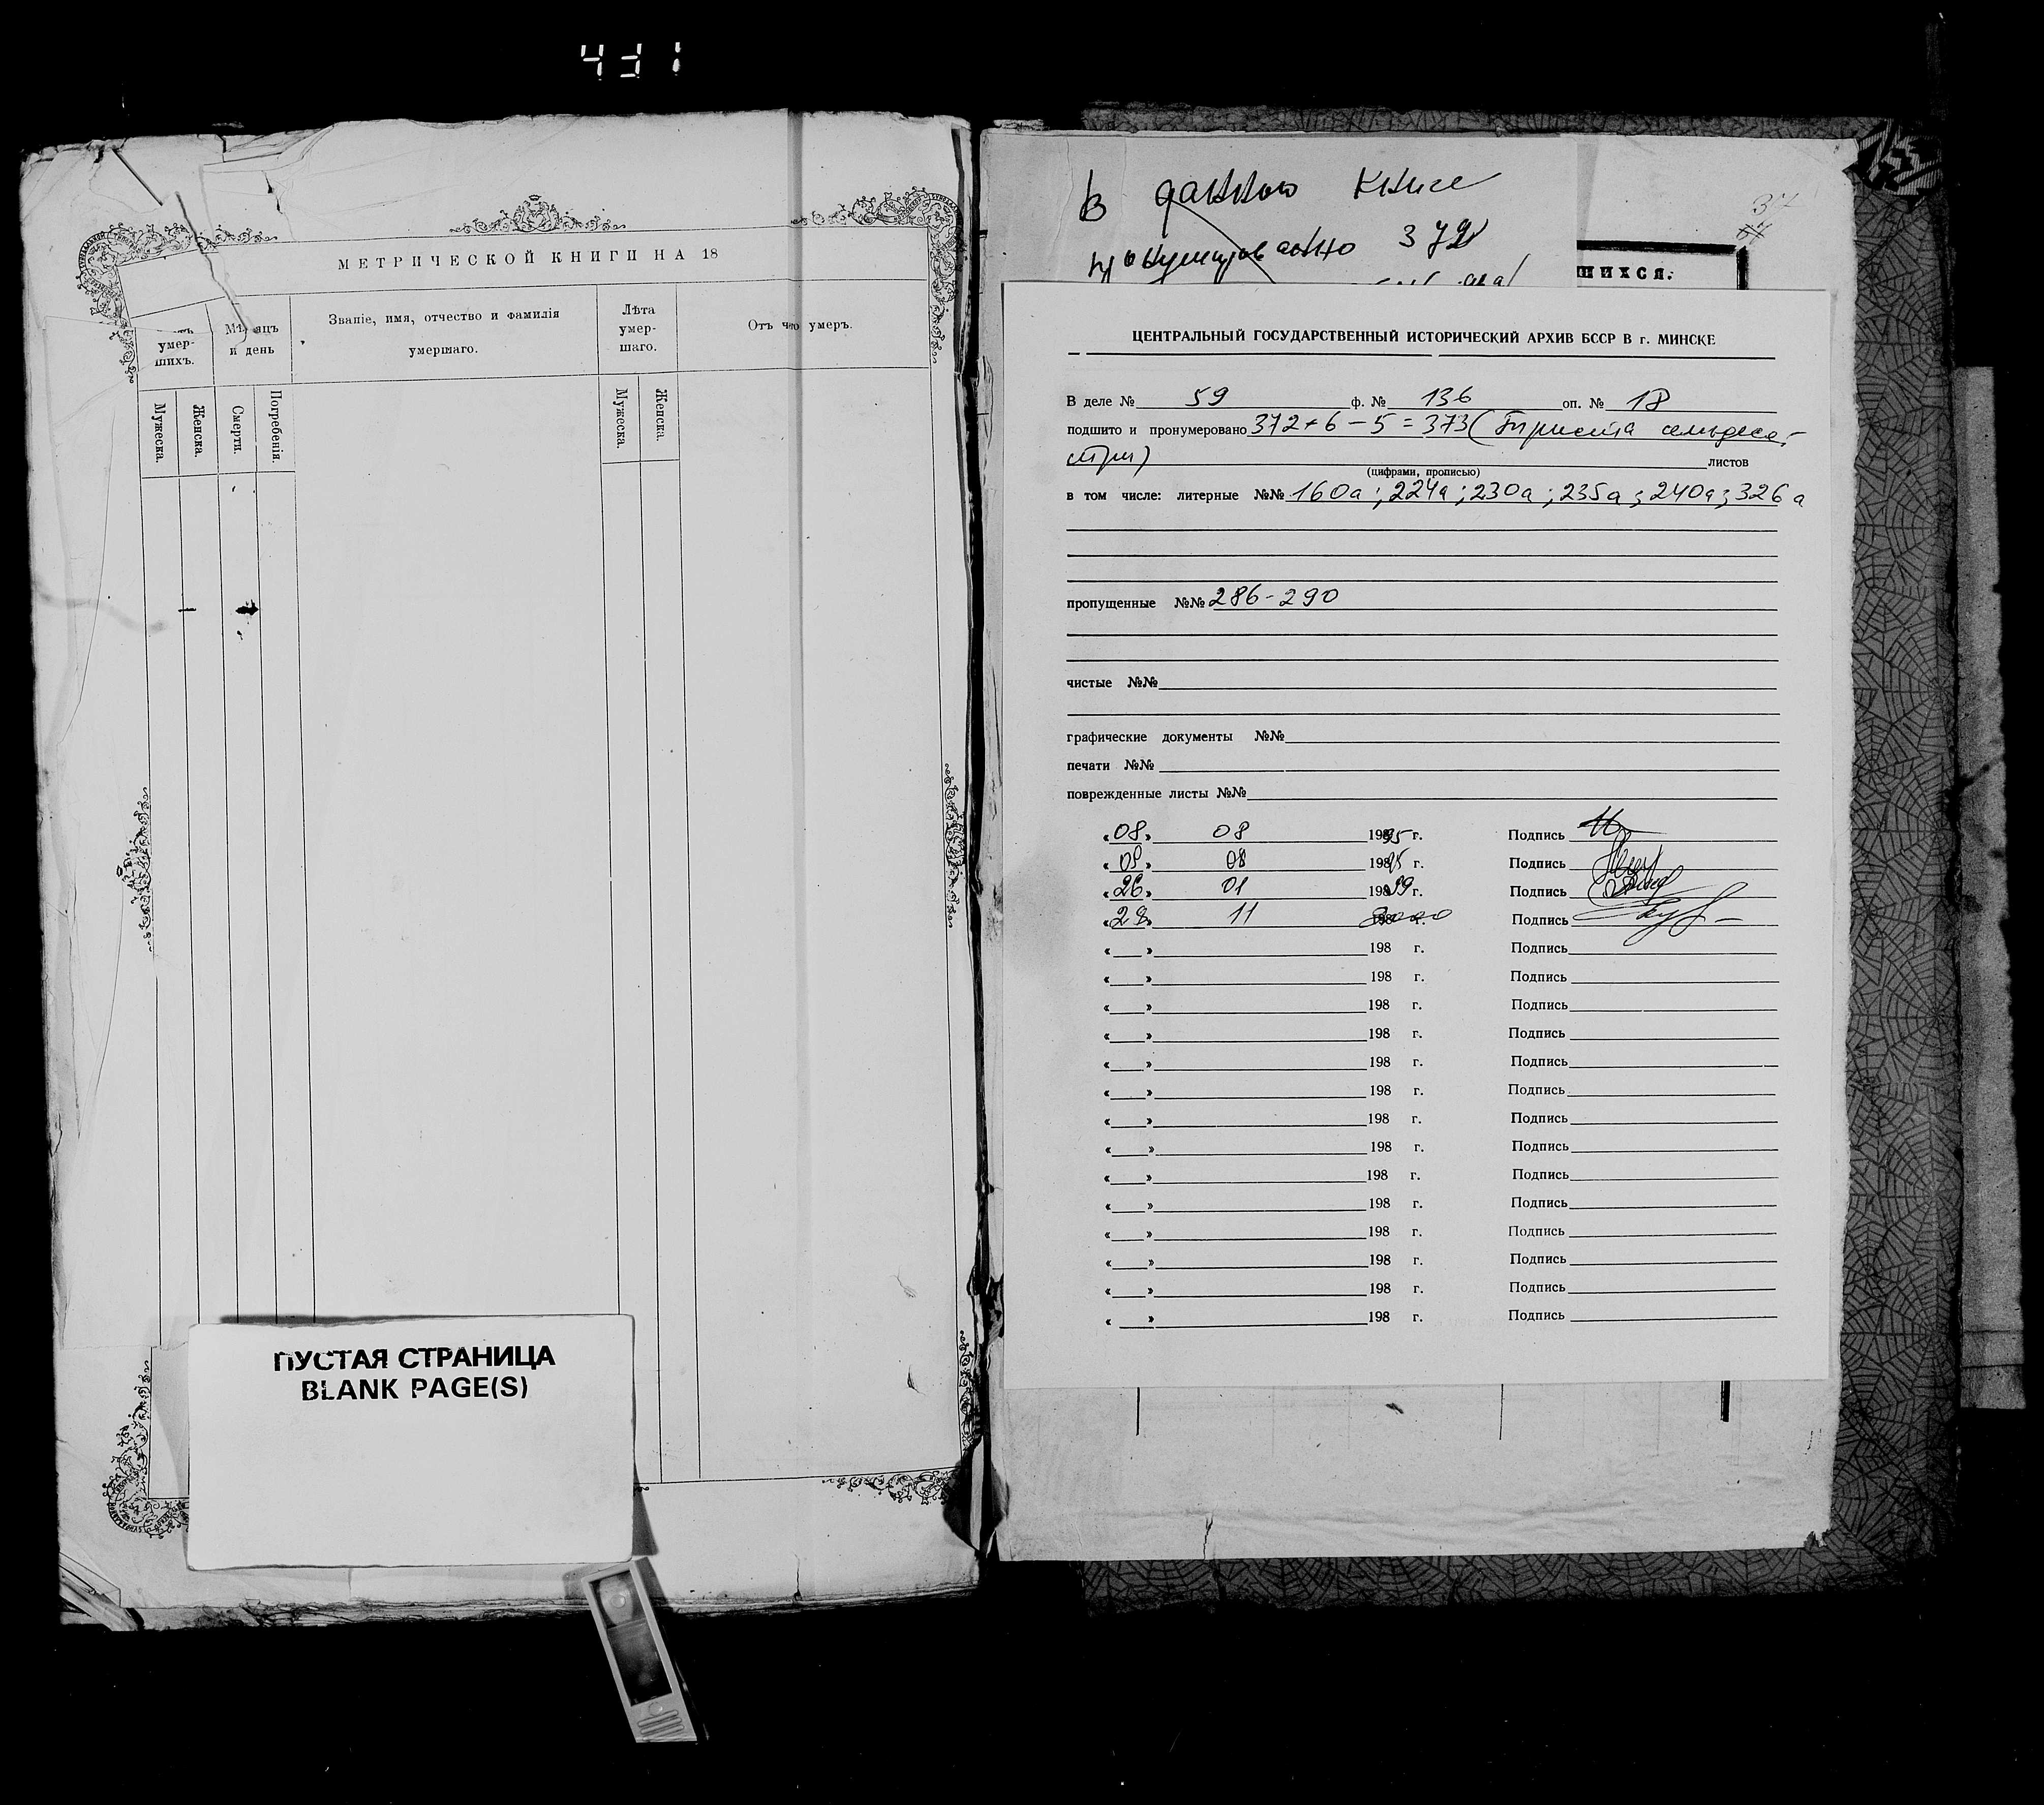 431
МЕТРИЧЕСКОЙ КНИГИ НА 18
умер-
шихъ.
и день
Званіе, имя, отчество и фамилія
умершаго.
Лѣта
умер-
шаго.
Отъ что умеръ.
Мужеска.
Женска.
Смерти.
Погребенія.
Мужеска.
Женска.
ПУСТАЯ СТРАНИЦА
BLANK PAGE(S)
В данною книге
пронумеровано 372
37
ШИХСЯ.
ЦЕНТРАЛЬНЫЙ ГОСУДАРСТВЕННЫЙ ИСТОРИЧЕСКИЙ АРХИВ БССР В г. МИНСКЕ
В деле № 59 ф. № 136 оп. № 18
подшито и пронумеровано 372+6-5=373 (Триста семьдесят
три) листов
(цифрами, прописью)
в том числе: литерные №№ 160а; 224а; 230а; 235а; 240а; 326а
пропущенные №№ 286-290
чистые №№
графические документы №№
печати №№
поврежденные листы №№
«08» 08 1995 г. Подпись
«09» 08 1995 г. Подпись
«26» 01 1999 г. Подпись
«28» 11 2000 г. Подпись
« » 198 г. Подпись
« » 198 г. Подпись
« » 198 г. Подпись
« » 198 г. Подпись
« » 198 г. Подпись
« » 198 г. Подпись
« » 198 г. Подпись
« » 198 г. Подпись
« » 198 г. Подпись
« » 198 г. Подпись
« » 198 г. Подпись
« » 198 г. Подпись
« » 198 г. Подпись
« » 198 г. Подпись